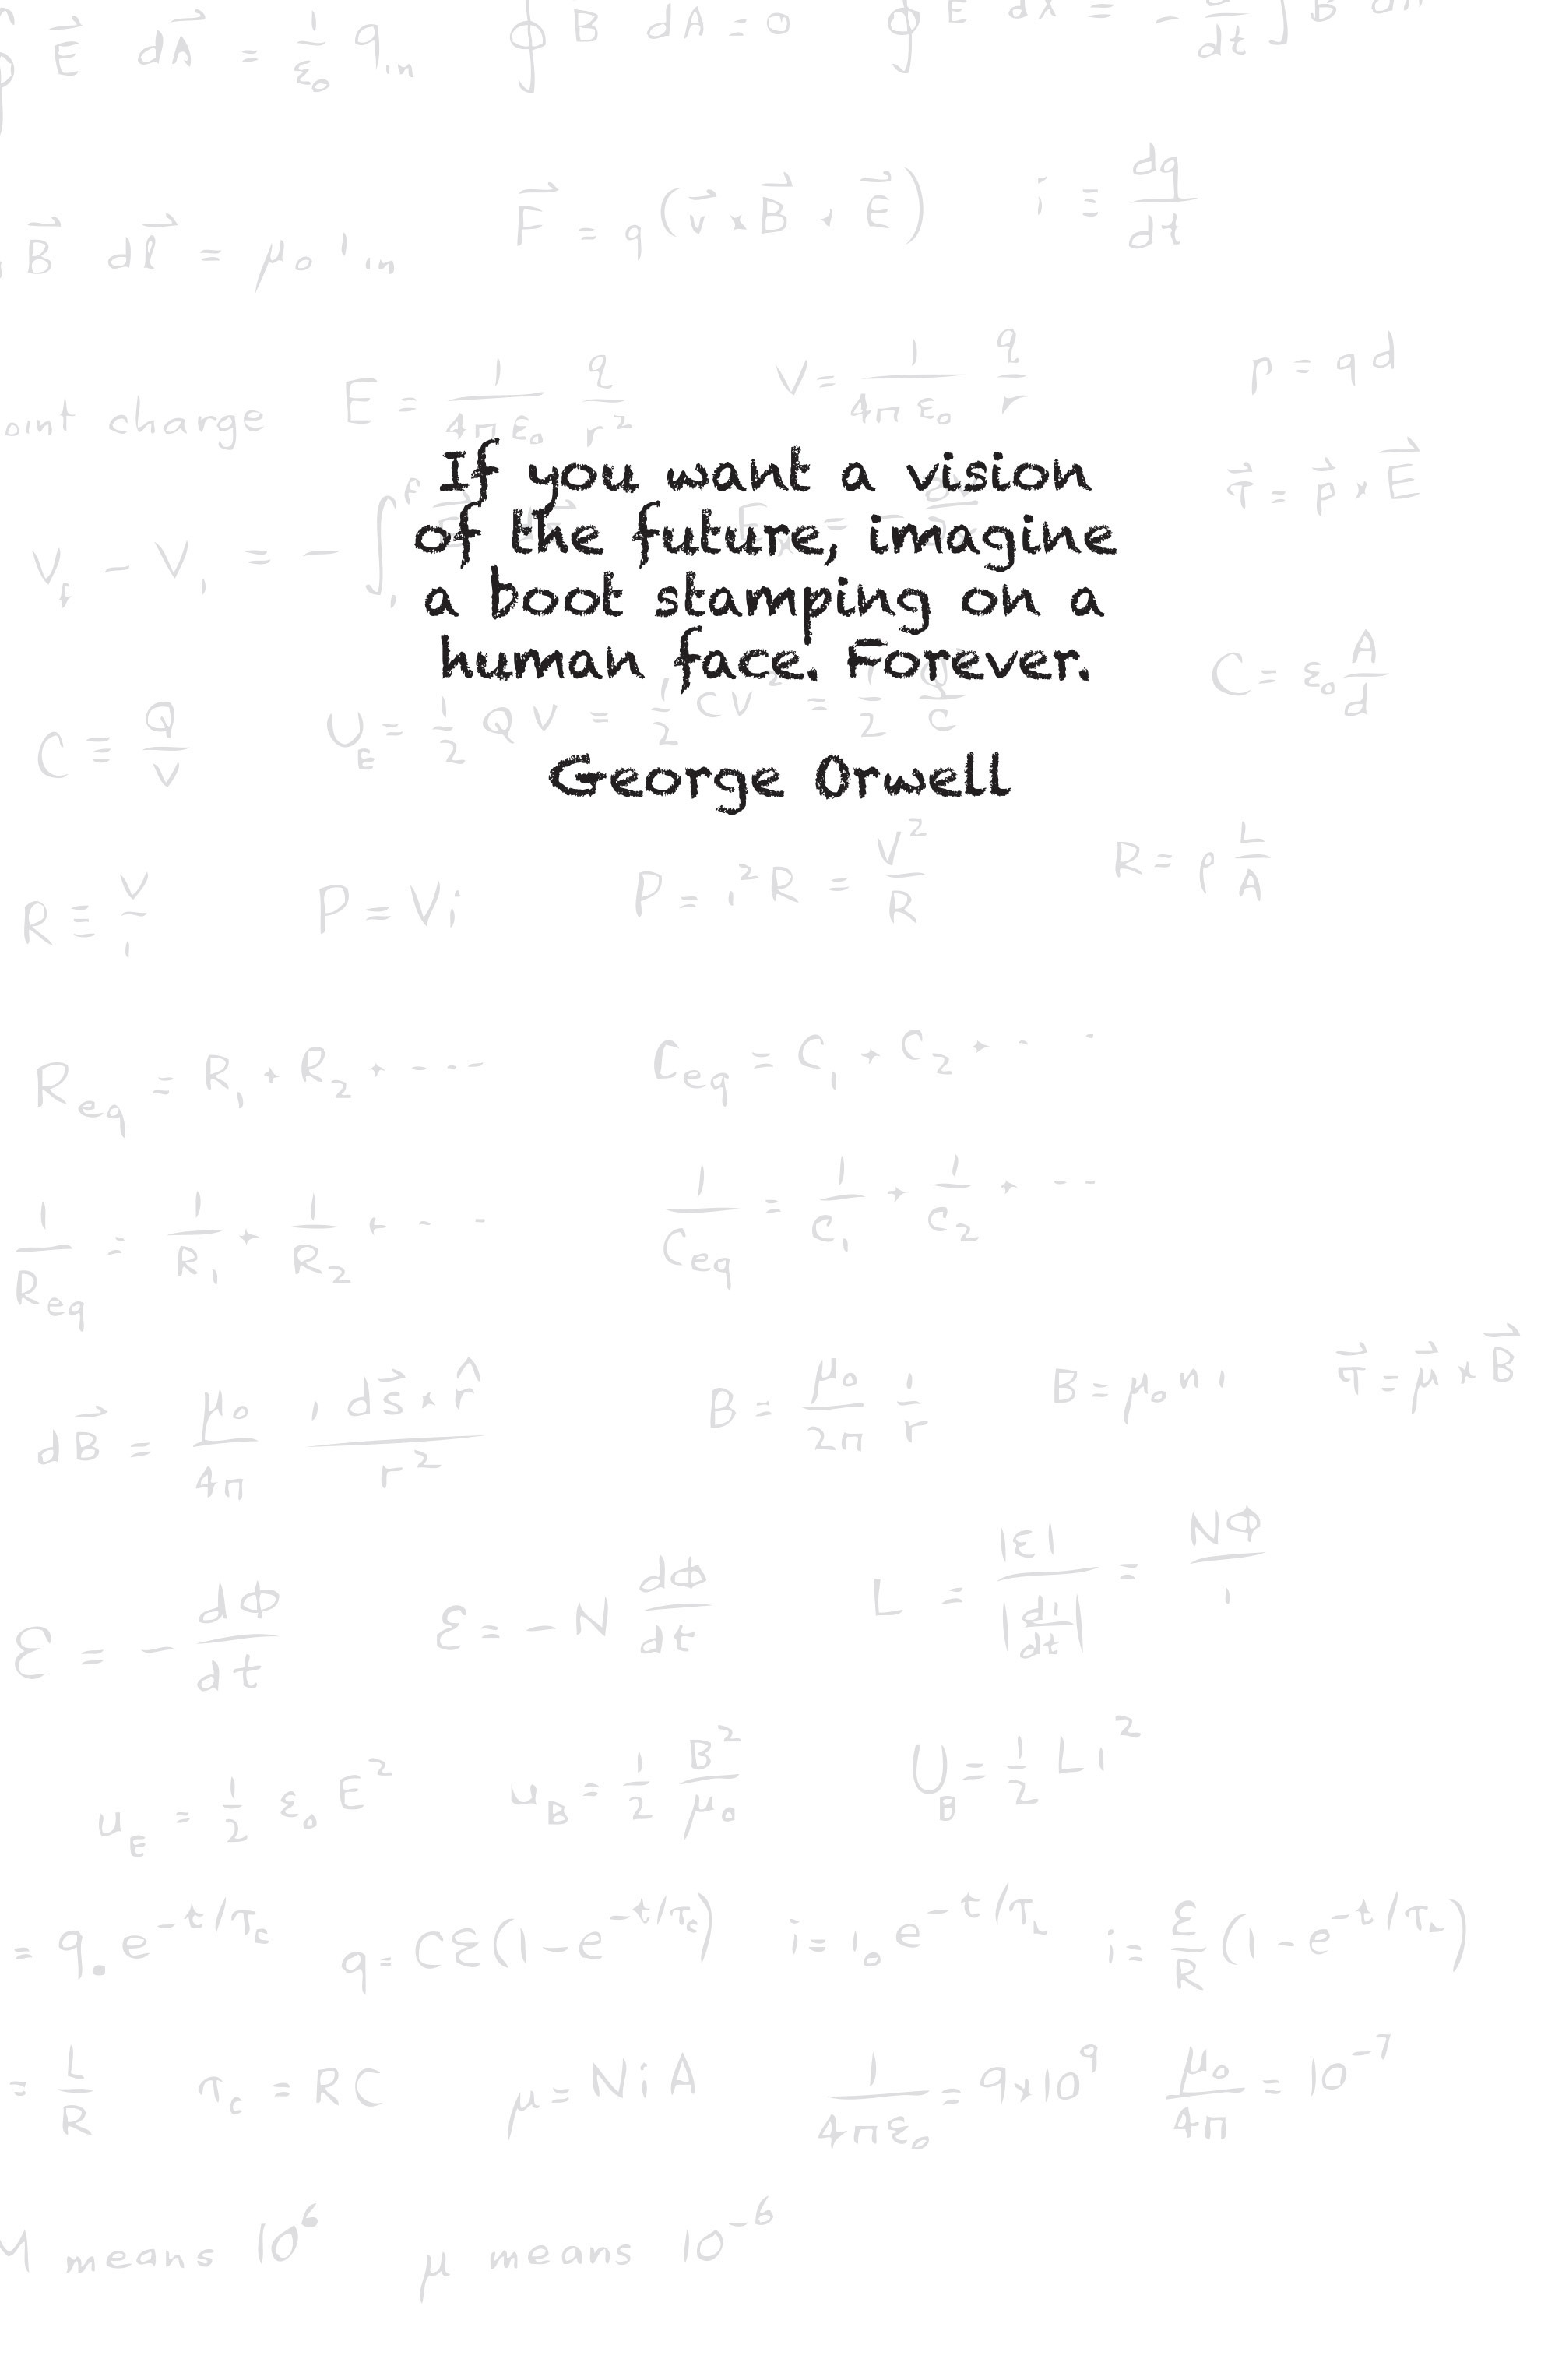 E dA = 1/ε₀ q_in   ∮ B dA = 0   ∮ E dλ = - /dt ∫ B
B dl = μ₀ i_in   F = q (v × B + E)   i ≡ dq/dt
oint charge   E = 1/4πε₀ q/r²   V = 1/4πε₀ q/r   p = q d
If you want a vision
of the future, imagine
a boot stamping on a
human face. Forever.
V_f - V_i = - ∫   τ = p × E
C ≡ Q/V   U_E = 1/2 Q V = 1/2 C V² = 1/2 Q²/C   C = ε₀ A/d
George Orwell
R ≡ V/i   P = Vi   P = i² R = V²/R   R = ρ L/A
R_eq = R₁ + R₂ + ----   C_eq = C₁ + C₂ + - - -
1/R_eq = 1/R₁ + 1/R₂ + - - -   1/C_eq = 1/C₁ + 1/C₂ + - - -
dB = μ₀/4π i ds × r̂/r²   B = μ₀/2π i/r   B = μ₀ n i   τ = μ × B
Ɛ = - dΦ/dt   Ɛ = - N dΦ/dt   L = |Ɛ|/|di/dt| = NΦ/i
u_E = 1/2 ε₀ E²   u_B = 1/2 B²/μ₀   U_B = 1/2 L i²
= q₀ e^-t/τ_c   q = CƐ(1 - e^-t/τ_c)   i = i₀ e^-t/τ_L   i = Ɛ/R (1 - e^-t/τ_L)
= L/R   τ_c = RC   μ = NiA   1/4πε₀ = 9×10⁹   μ₀/4π = 10⁻⁷
M means 10⁶   μ means 10⁻⁶